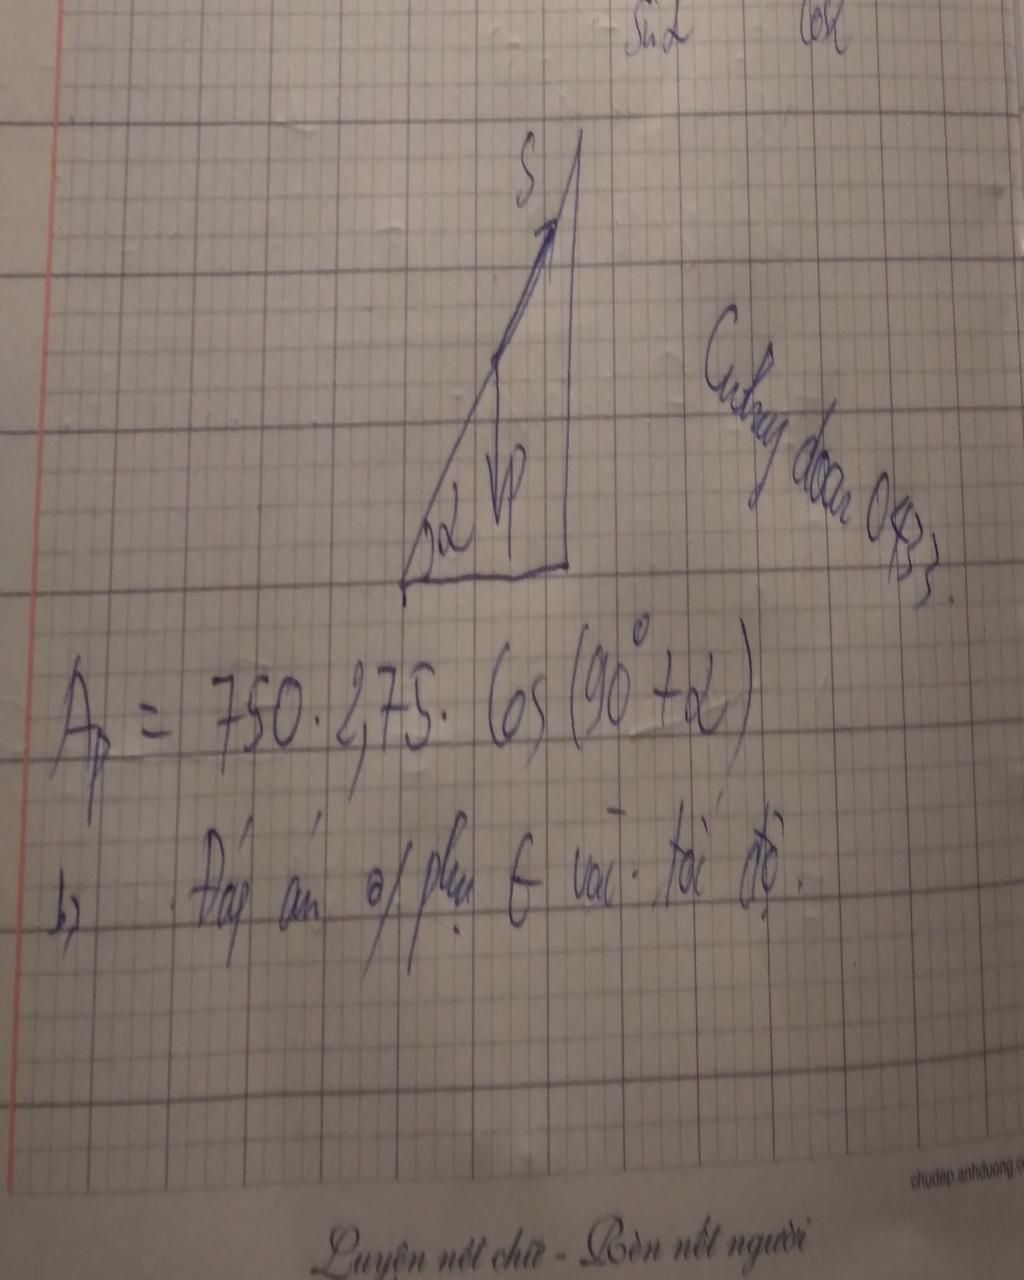 Sin α cos α
S
α P
A_P = 750. 2,75. Cos (90° + α)
b, Đáp án o/ phụ ∈ vào tốc độ.
chudep.anhduong.c
Luyện nét chữ - Rèn nết người